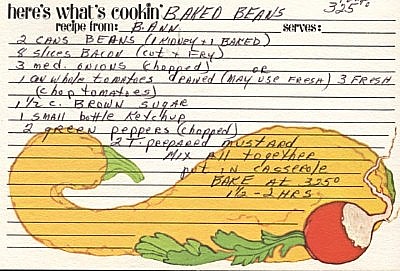 here's what's cookin' BAKED BEANS 325°
recipe from: B. ANN serves:
2 CANS BEANS (1 MONEY + 1 BAKED)
8 slices BACON (cut + FRY)
3 med. ONIONS (chopped) OR
1 can whole tomatoes drained (MAY USE FRESH) 3 FRESH
(chop tomatoes)
1 1/2 c. BROWN SUGAR
1 small bottle Ketchup
2 green peppers (chopped)
2 T. prepared mustard
MIX all together
put in CASSEROLE
BAKE AT 325°
1 1/2 - 2 HRS.